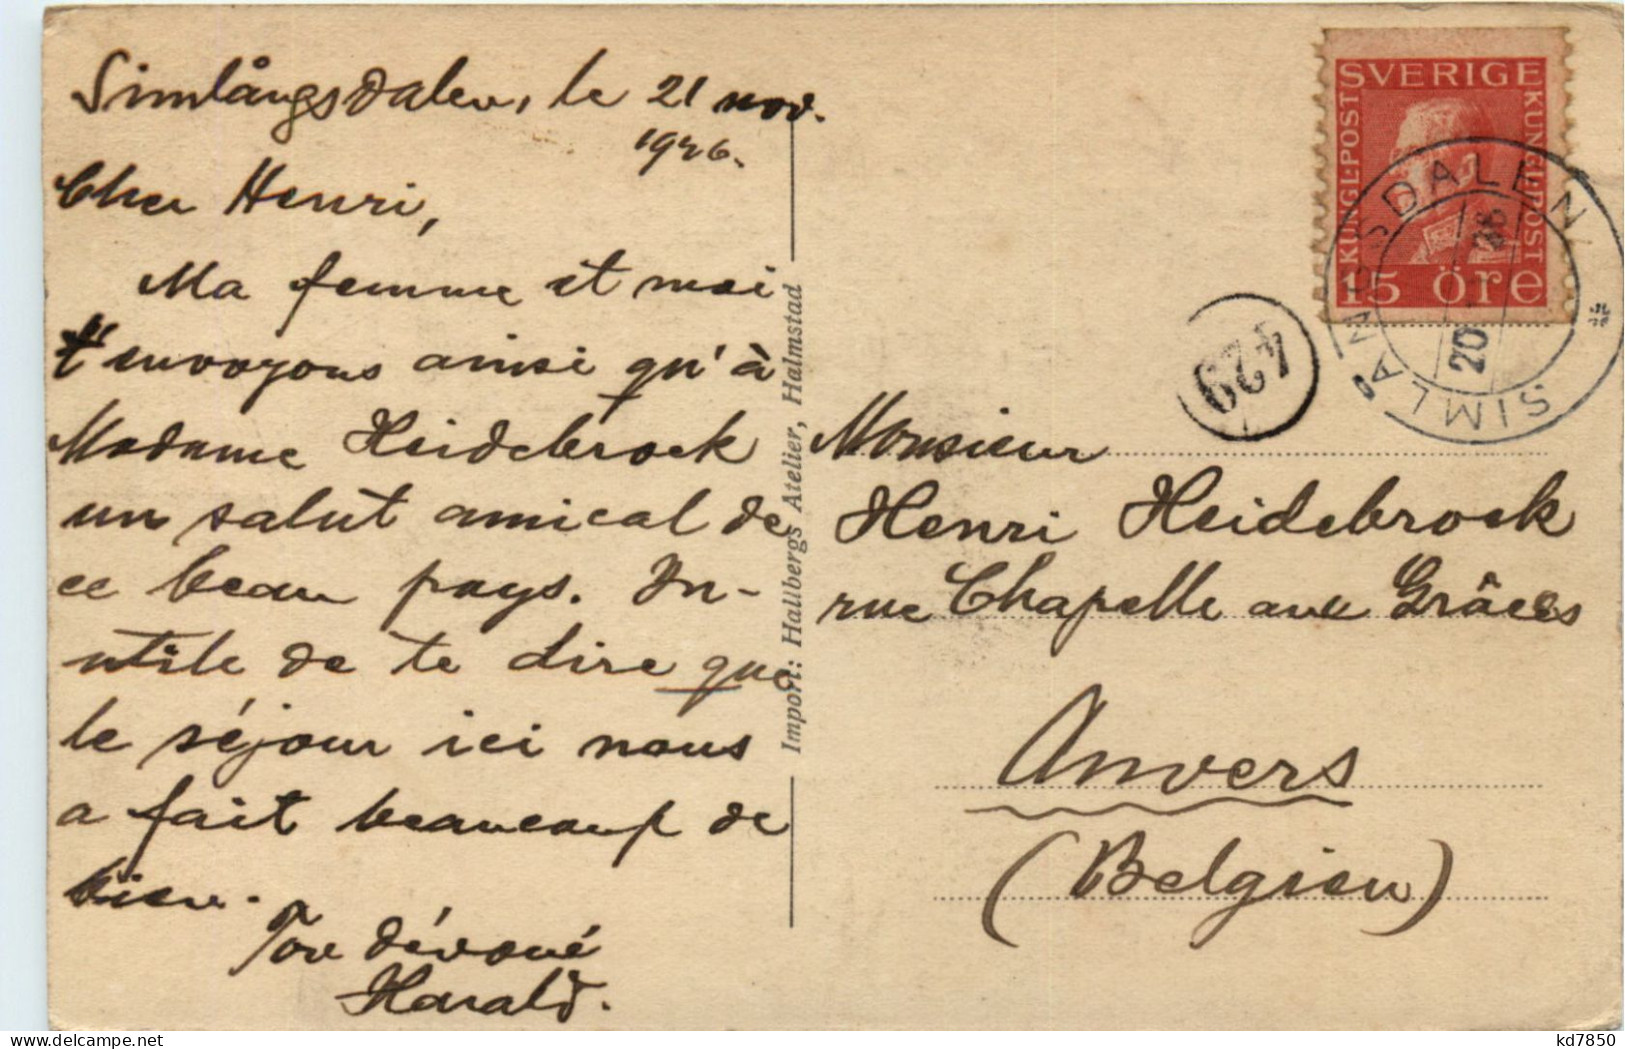 Simlångsdalen, le 21 nov.
1926.
Cher Henri,
Ma femme et moi
t'envoyons ainsi qu'à
Madame Heidebroek
un salut amical de
ce beau pays. In-
utile de te dire que
le séjour ici nous
a fait beaucoup de
bien.
Ton dévoué
Harald.
Import: Hallbergs Atelier, Halmstad
SVERIGE
KUNGL·POST
KUNGL·POST
15 ÖRE
SIMLÅNGSDALEN
20
26
429
Monsieur
Henri Heidebroek
rue Chapelle aux Grâces
Anvers
(Belgien)
kd7850